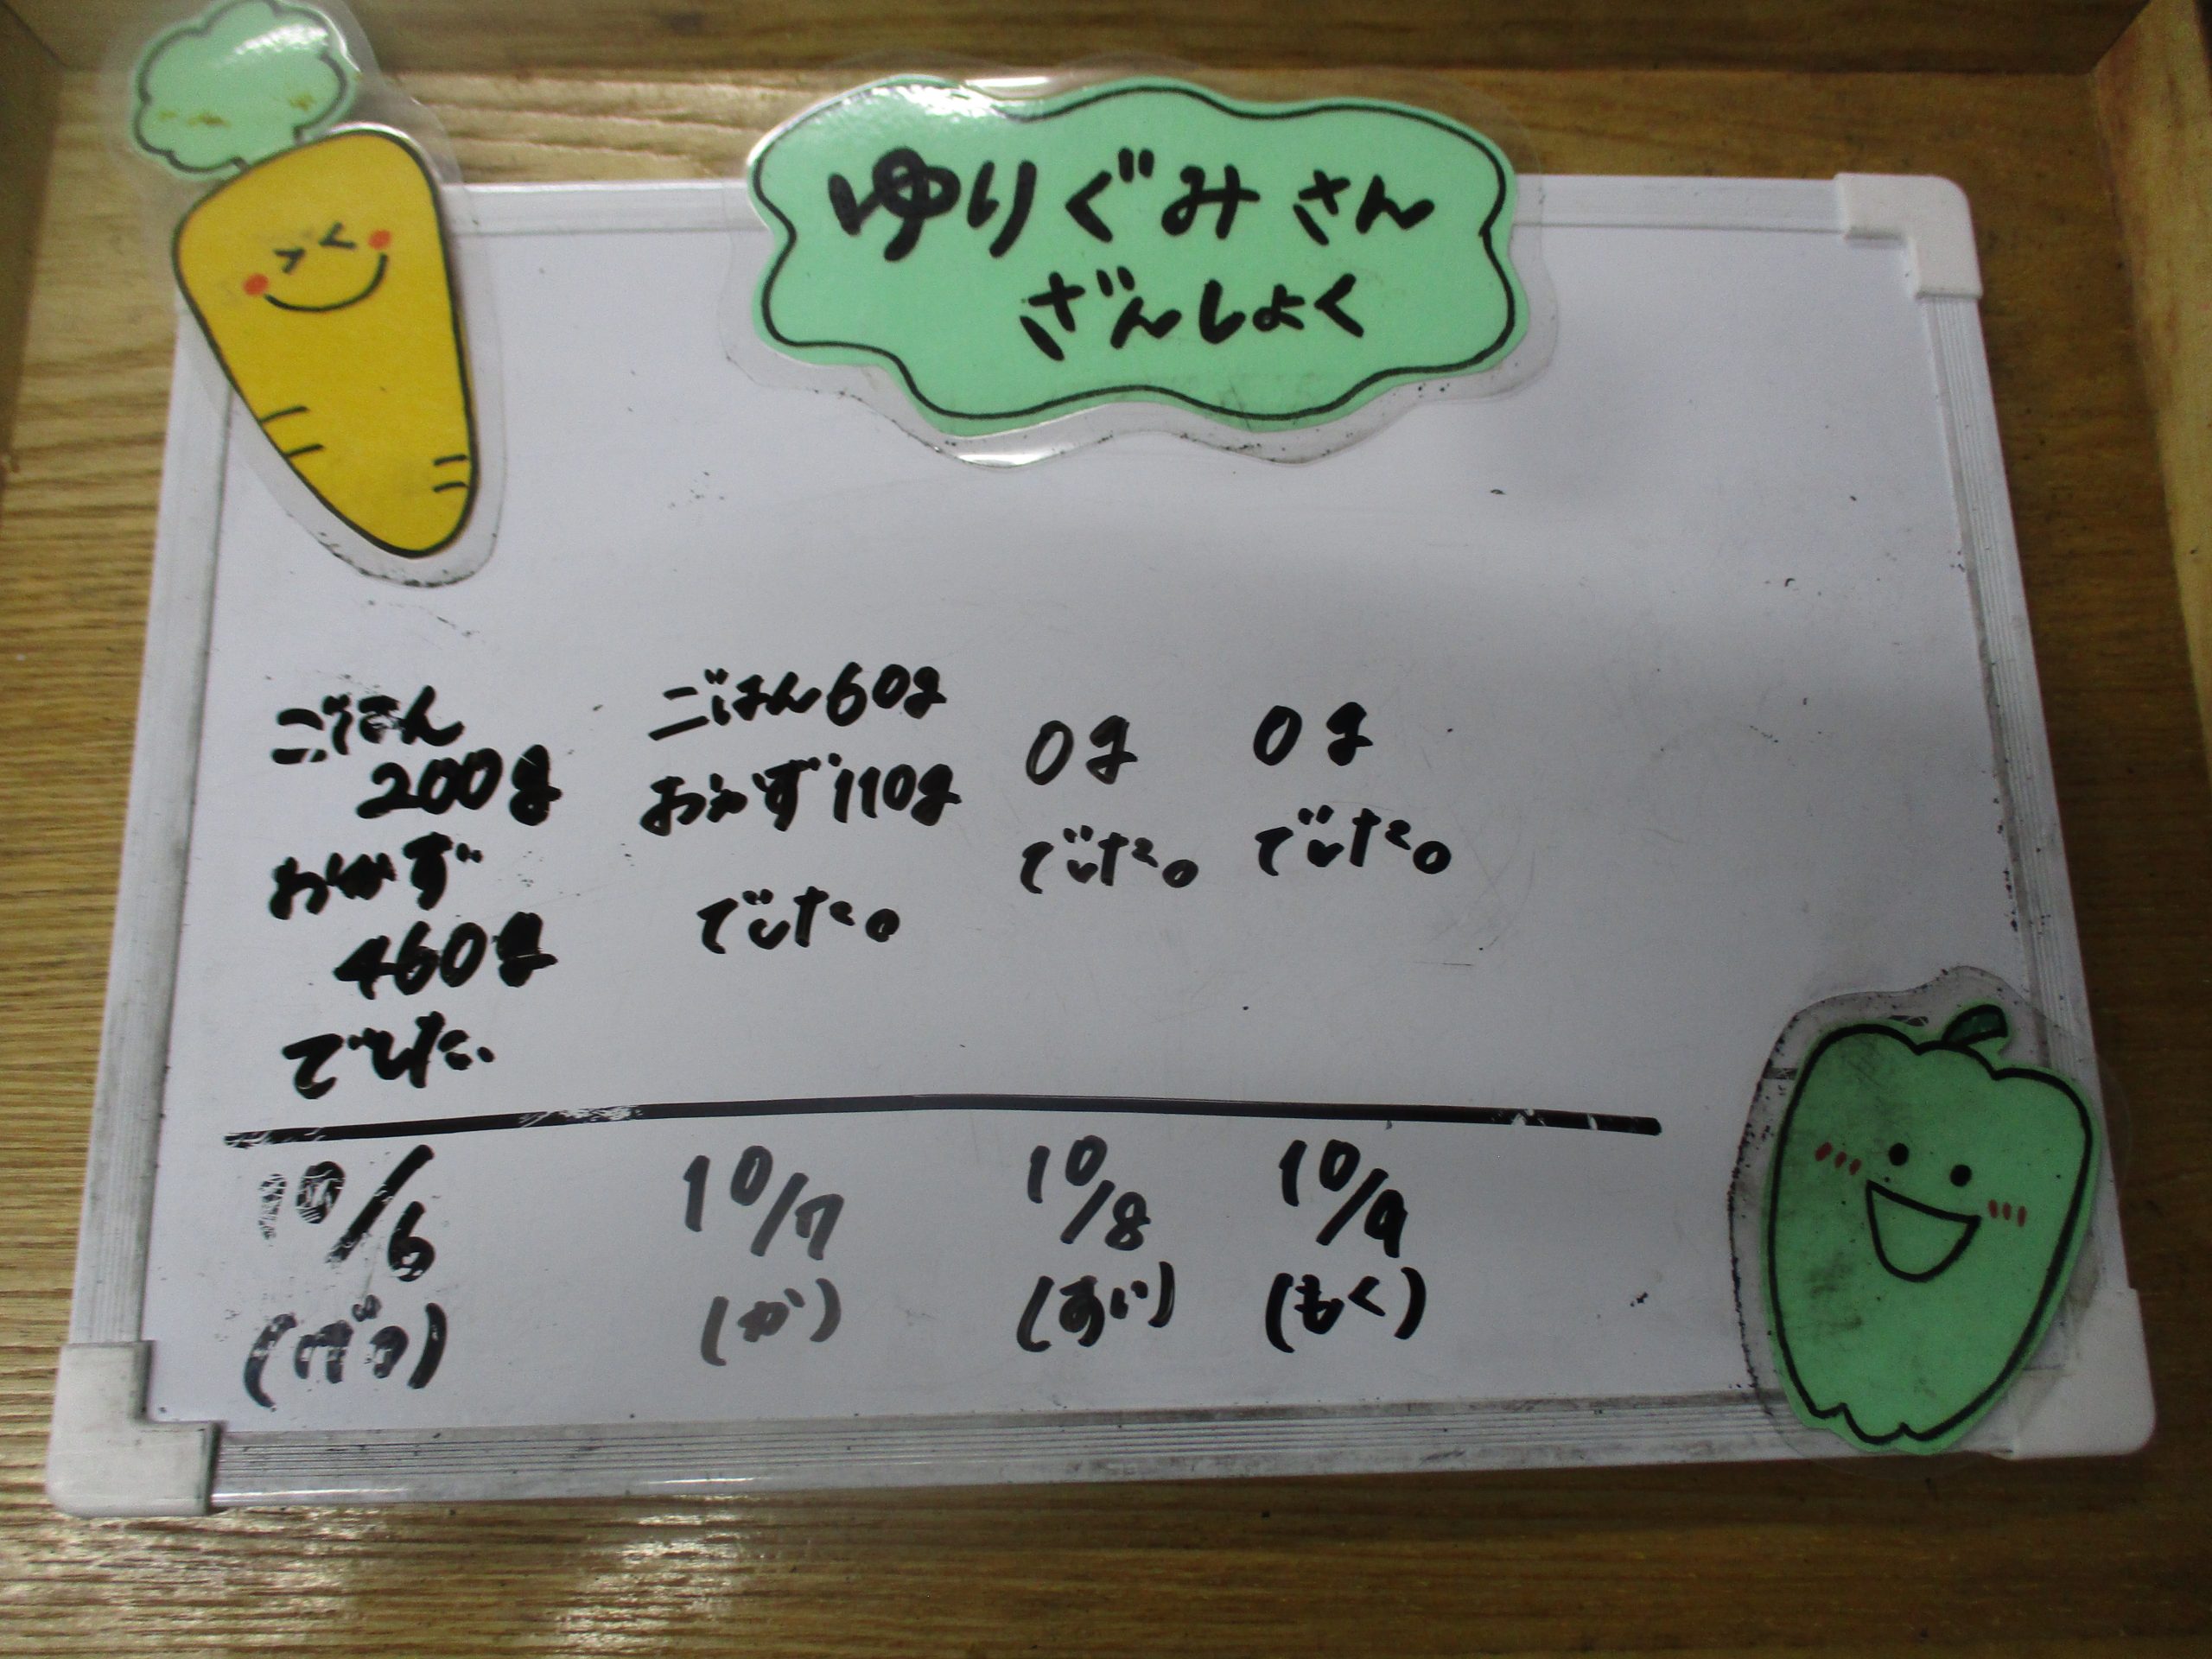 ゆりぐみさん
ざんしょく
ごはん
200g
おかず
460g
でした。
10/6
(げつ)
ごはん60g
おかず110g
でした。
10/7
(か)
0g
でした。
10/8
(すい)
0g
でした。
10/9
(もく)